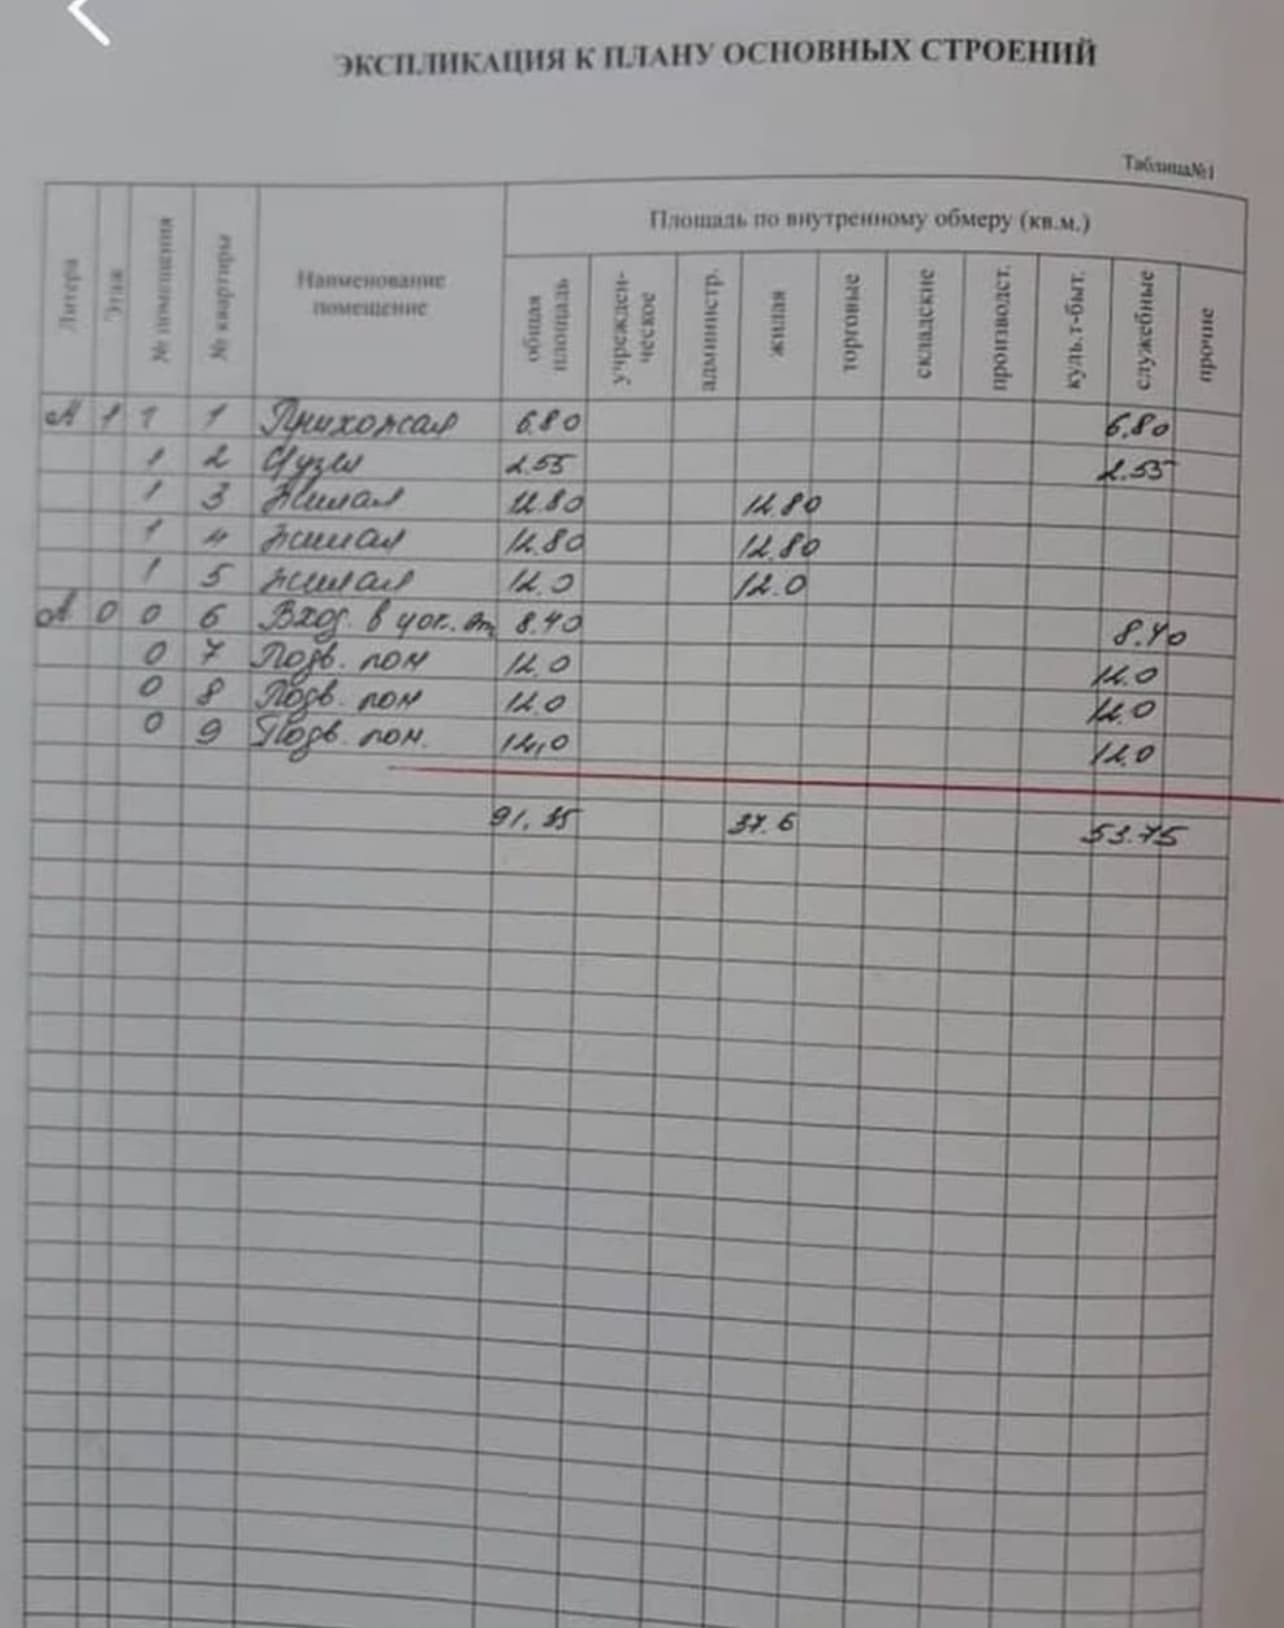 ЭКСПЛИКАЦИЯ К ПЛАНУ ОСНОВНЫХ СТРОЕНИЙ
Таблица№1
Литера Этаж № помещения № квартиры Наименование помещение Площадь по внутренному обмеру (кв.м.)
общая площаль учрежден-ческое администр. жилая торговые складские производст. куль.т-быт. служебные прочие
А 1 1 1 Прихожая 6.80 6.80
1 2 С/узел 2.55 2.55
1 3 Жилая 12.80 12.80
1 4 жилая 12.80 12.80
1 5 жилая 12.0 12.0
А 0 0 6 Вход. в цок. эт. 8.40 8.40
0 7 Подв. пом 12.0 12.0
0 8 Подв. пом 12.0 12.0
0 9 Подв. пом. 12,0 12.0
91.35 37.6 53.75